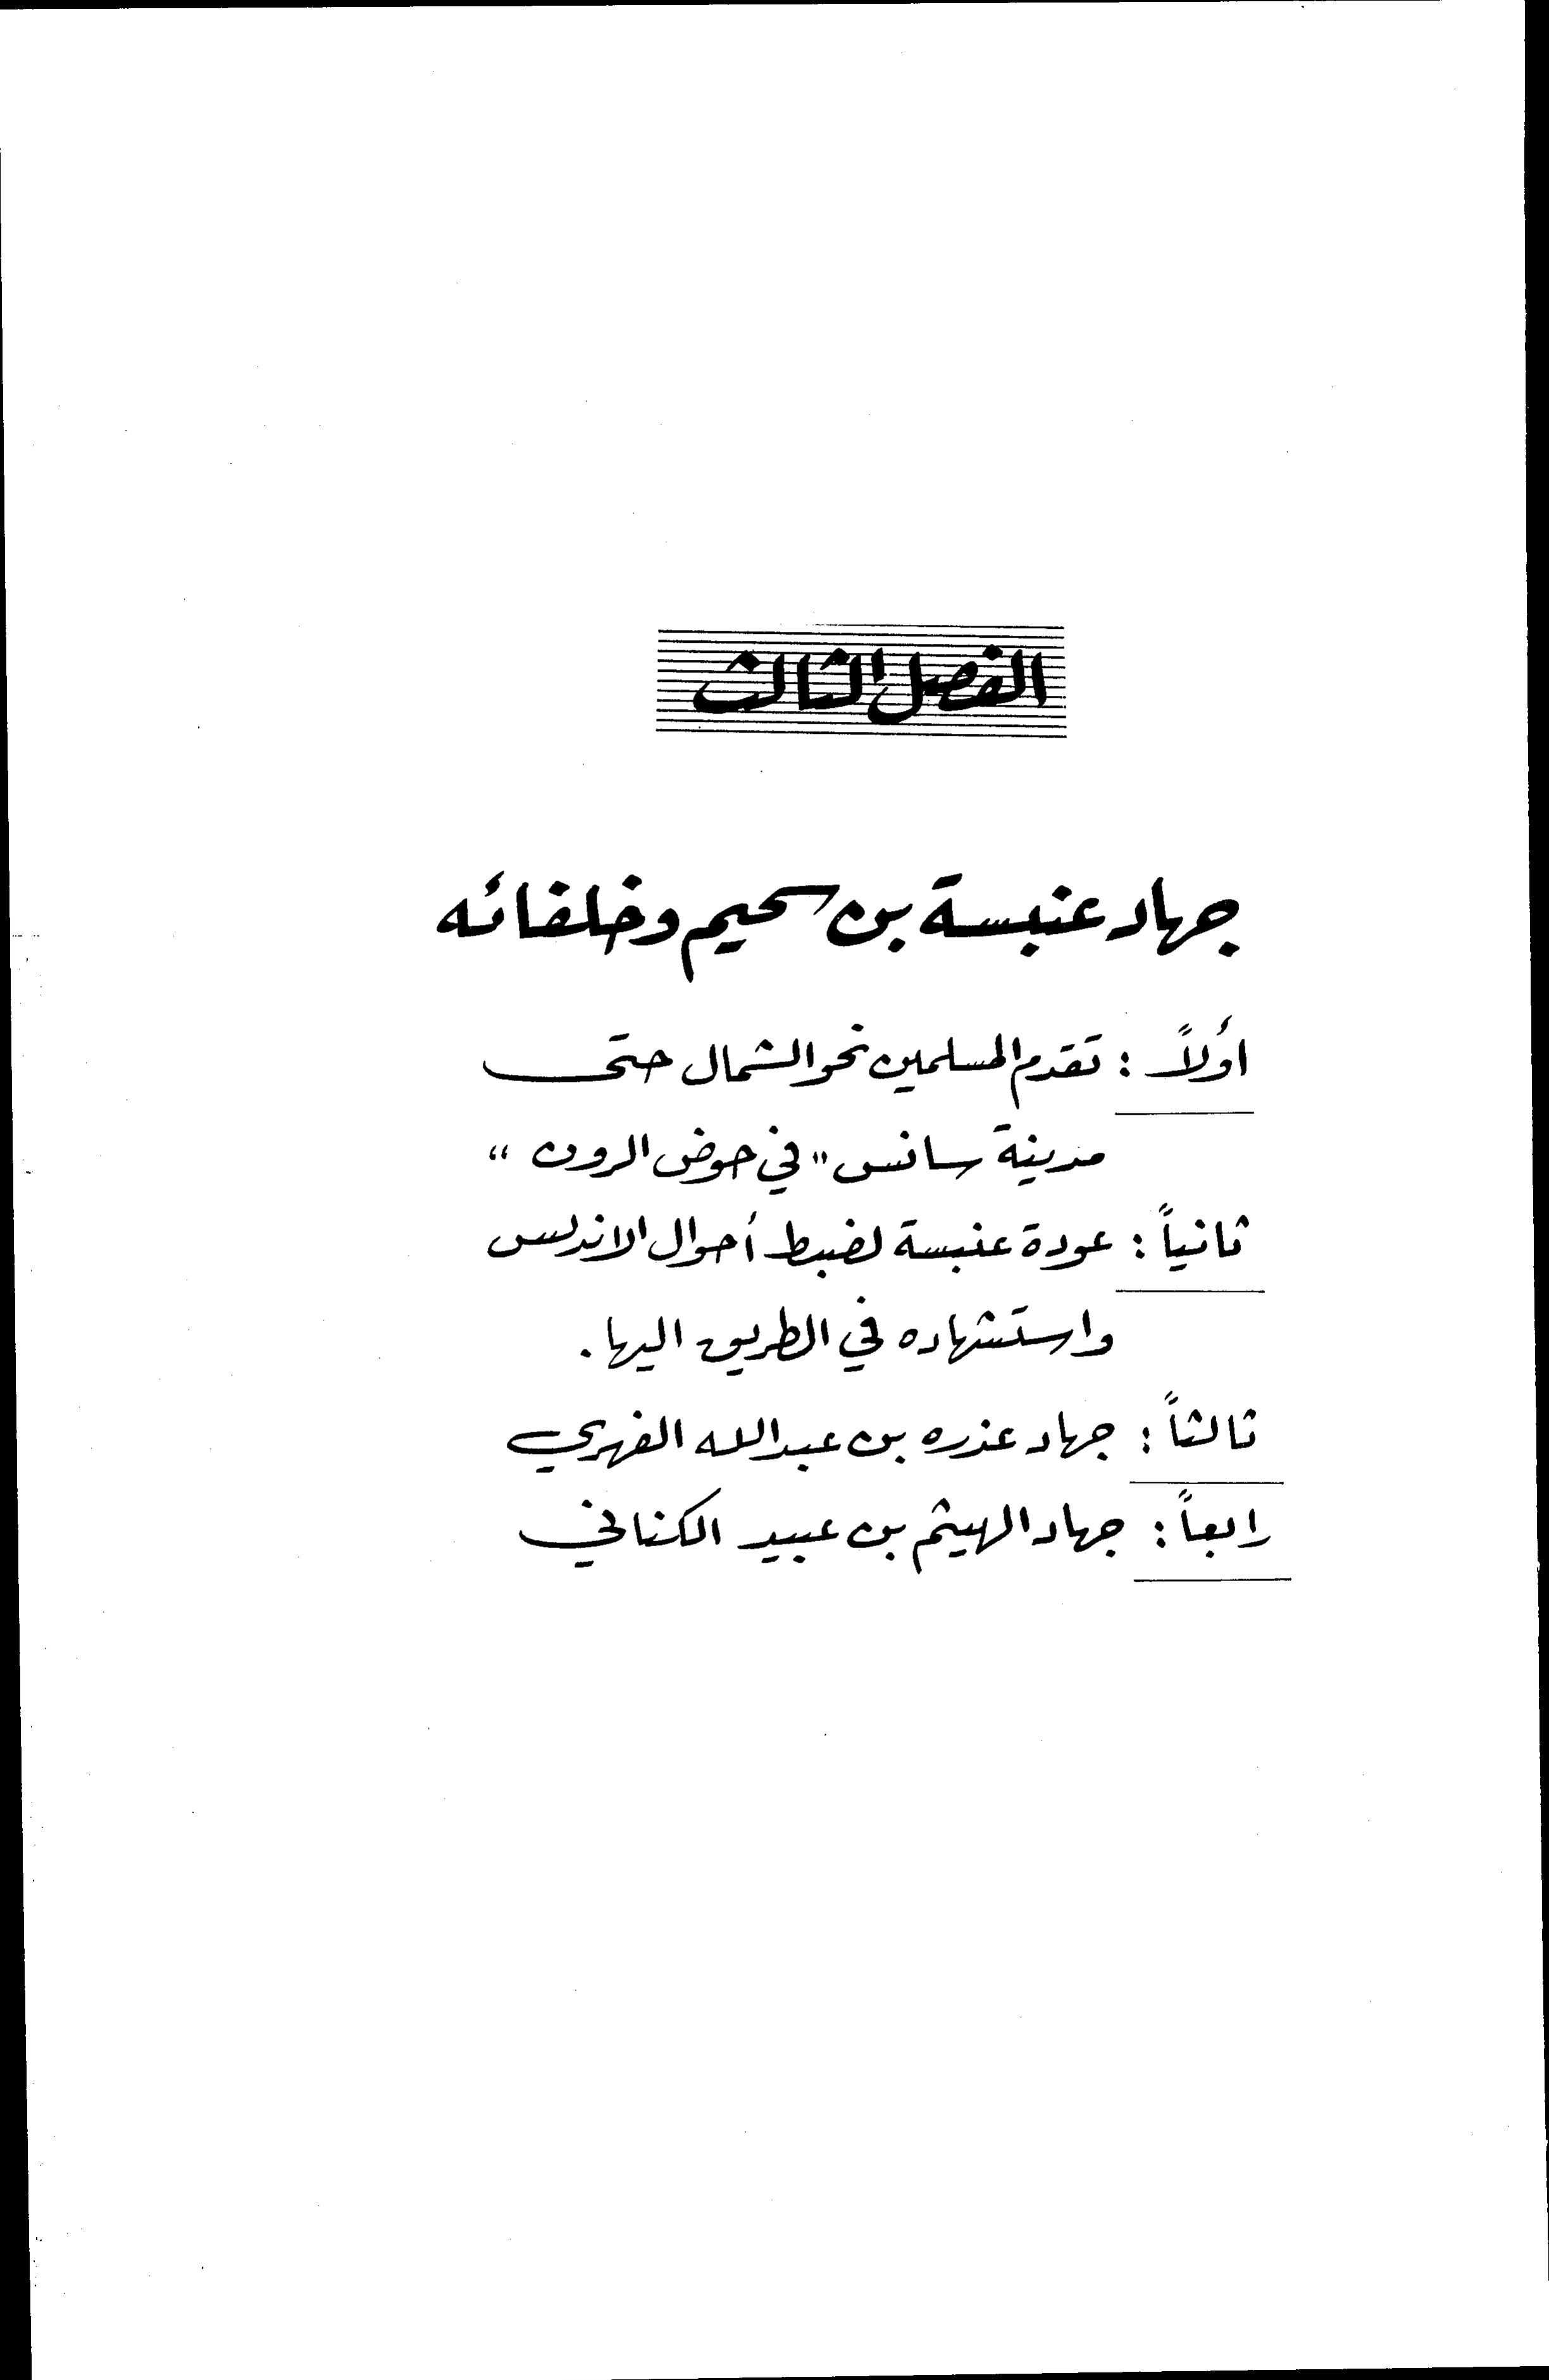 الفصل الثالث
جهاد عنبسة بن سحيم وخلفائه
أولاً : تقدم المسلمين نحو الشمال حتى
مدينة سانس "في حوض الرون"
ثانياً : عودة عنبسة لضبط أحوال الاندلس
واستشهاده في الطريق اليها .
ثالثاً : جهاد عذره بن عبدالله الفهري
رابعاً : جهاد الهيثم بن عبيد الكناني